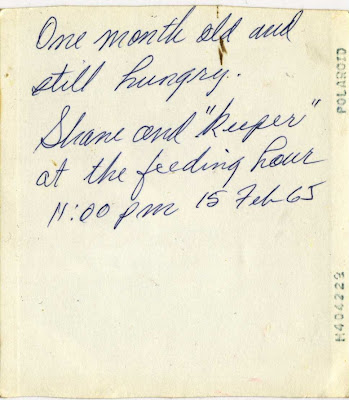 One month old and
still hungry.
Shane and "keeper"
at the feeding hour
11:00 pm 15 Feb 65
POLAROID
H404229